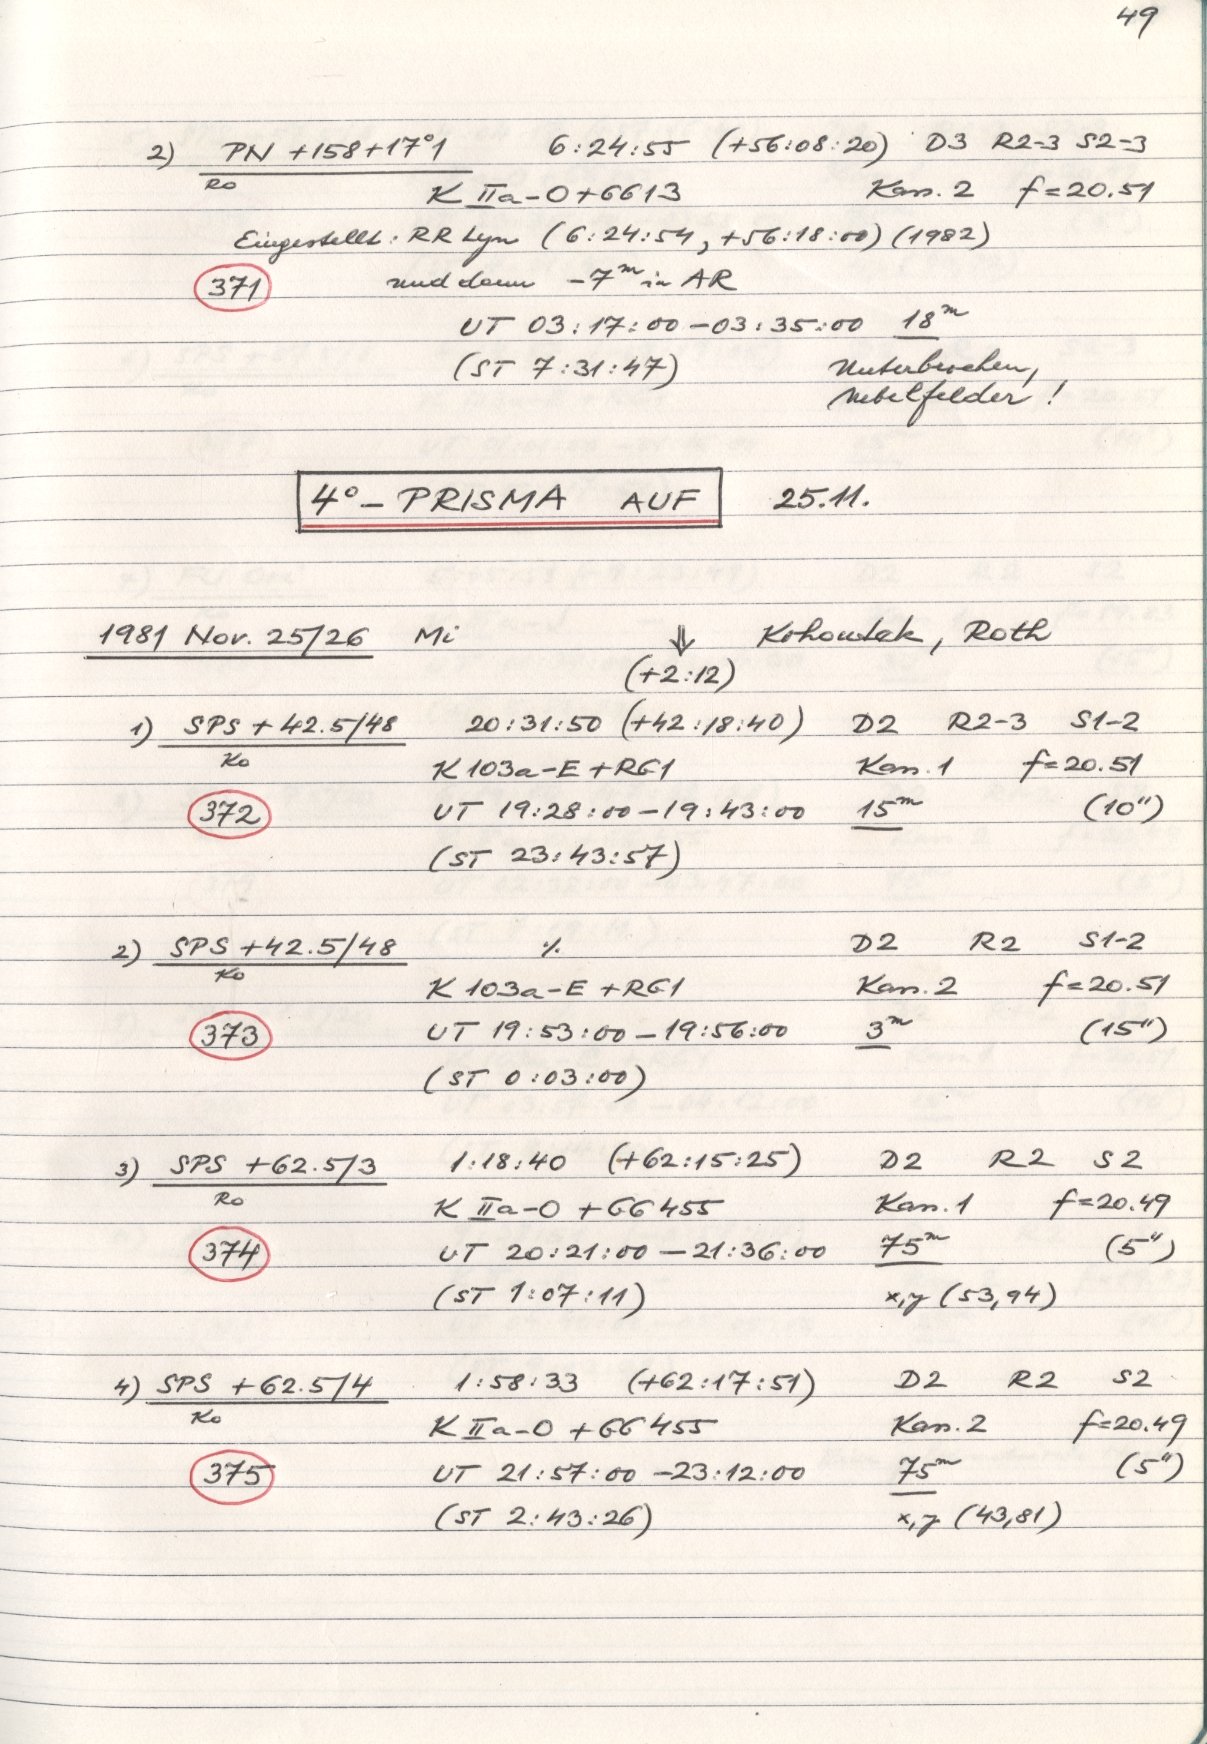 49
2) PN +158+17°1 6:24:55 (+56:08:20) D3 R2-3 S2-3
Ro K IIa-O+GG13 Kan. 2 f=20.51
Eingestellt: RR Lyn (6:24:54, +56:18:00) (1982)
371 und dann -7m in AR
UT 03:17:00-03:35:00 18m
(ST 7:31:47) Unterbrochen,
Nebelfelder!
4°-PRISMA AUF 25.11.
1981 Nov. 25/26 Mi ⇓ Kohoutek, Roth
(+2:12)
1) SPS +42.5/48 20:31:50 (+42:18:40) D2 R2-3 S1-2
Ko K 103a-E+RG1 Kan. 1 f=20.51
372 UT 19:28:00-19:43:00 15m (10")
(ST 23:43:57)
2) SPS +42.5/48 ٪ D2 R2 S1-2
Ko K 103a-E+RG1 Kan. 2 f=20.51
373 UT 19:53:00-19:56:00 3m (15")
(ST 0:03:00)
3) SPS +62.5/3 1:18:40 (+62:15:25) D2 R2 S2
Ro K IIa-O +GG455 Kan. 1 f=20.49
374 UT 20:21:00-21:36:00 75m (5")
(ST 1:07:11) x,y (53,94)
4) SPS +62.5/4 1:58:33 (+62:17:51) D2 R2 S2
Ko K IIa-O +GG455 Kan. 2 f=20.49
375 UT 21:57:00-23:12:00 75m (5")
(ST 2:43:26) x,y (43,81)